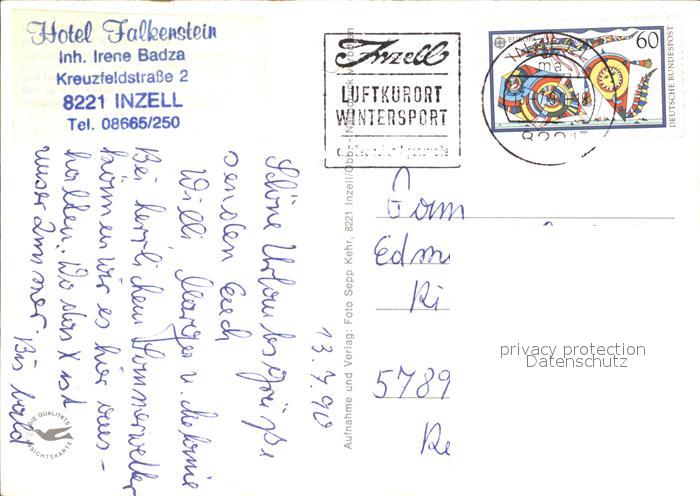 Hotel Falkenstein
Inh. Irene Badza
Kreuzfeldstraße 2
8221 INZELL
Tel. 08665/250
Inzell
LUFTKURORT
WINTERSPORT
EUROPA
60
DEUTSCHE BUNDESPOST
INZELL
ma
8221
13.7.90
Schöne Urlaubsgrüße
senden Euch
Willi Margot u. Melanie
Bei herrlichem Sommerwetter
können wir es hier aus-
halten. Wo das X ist
unser Zimmer. Bis bald
DIE QUALITÄTS
ANSICHTSKARTE
Aufnahme und Verlag: Foto Sepp Kehr, 8221 Inzell/Obb.
Fam
Edm
Ri
5789
Re
privacy protection
Datenschutz